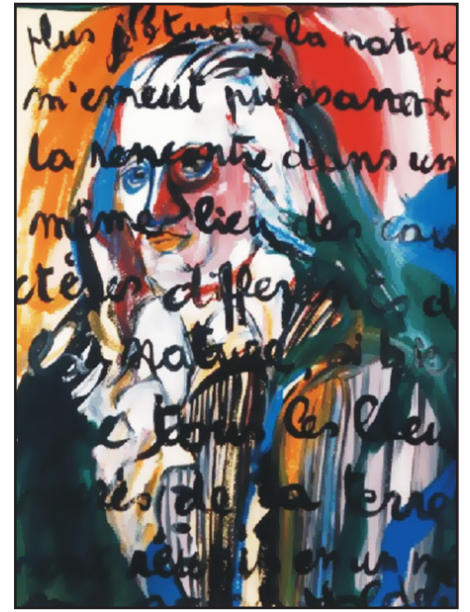 plus j'étudie, la nature
m'émeut puissament
la rencontre dans un
même lieu des cara
ctères différents d
la nature si bien
e tous les lieu
de la terre
réunis en un